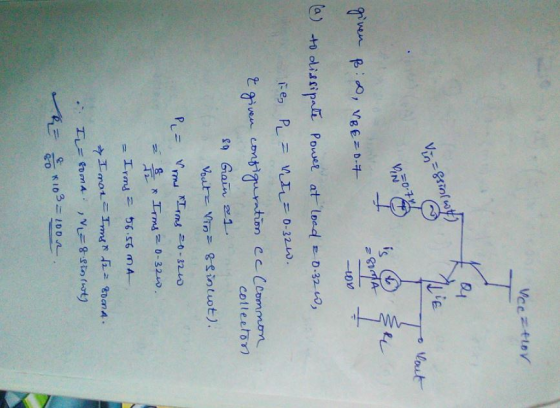 given β: ∞, VBE = 0.7
VCC = +10V
Q1
Vin = 8sin(ωt)
Vin = 0.7V
iE
is = 80mA
-10V
RL
Vout
(a) to dissipate Power at load = 0.32ω,
i.e, PL = VLIL = 0.32ω.
& given configuration CC (common collector)
so Gain ≈ 1.
Vout = Vin = 8sin(ωt).
PL = Vrms * Irms = 0.32ω
= 8/√2 × Irms = 0.32ω.
= Irms = 56.56mA
→ Imax = Irms × √2 = 80mA.
∴ IL = 80mA, VL = 8sin(ωt)
RL = 8/80 × 10³ = 100Ω